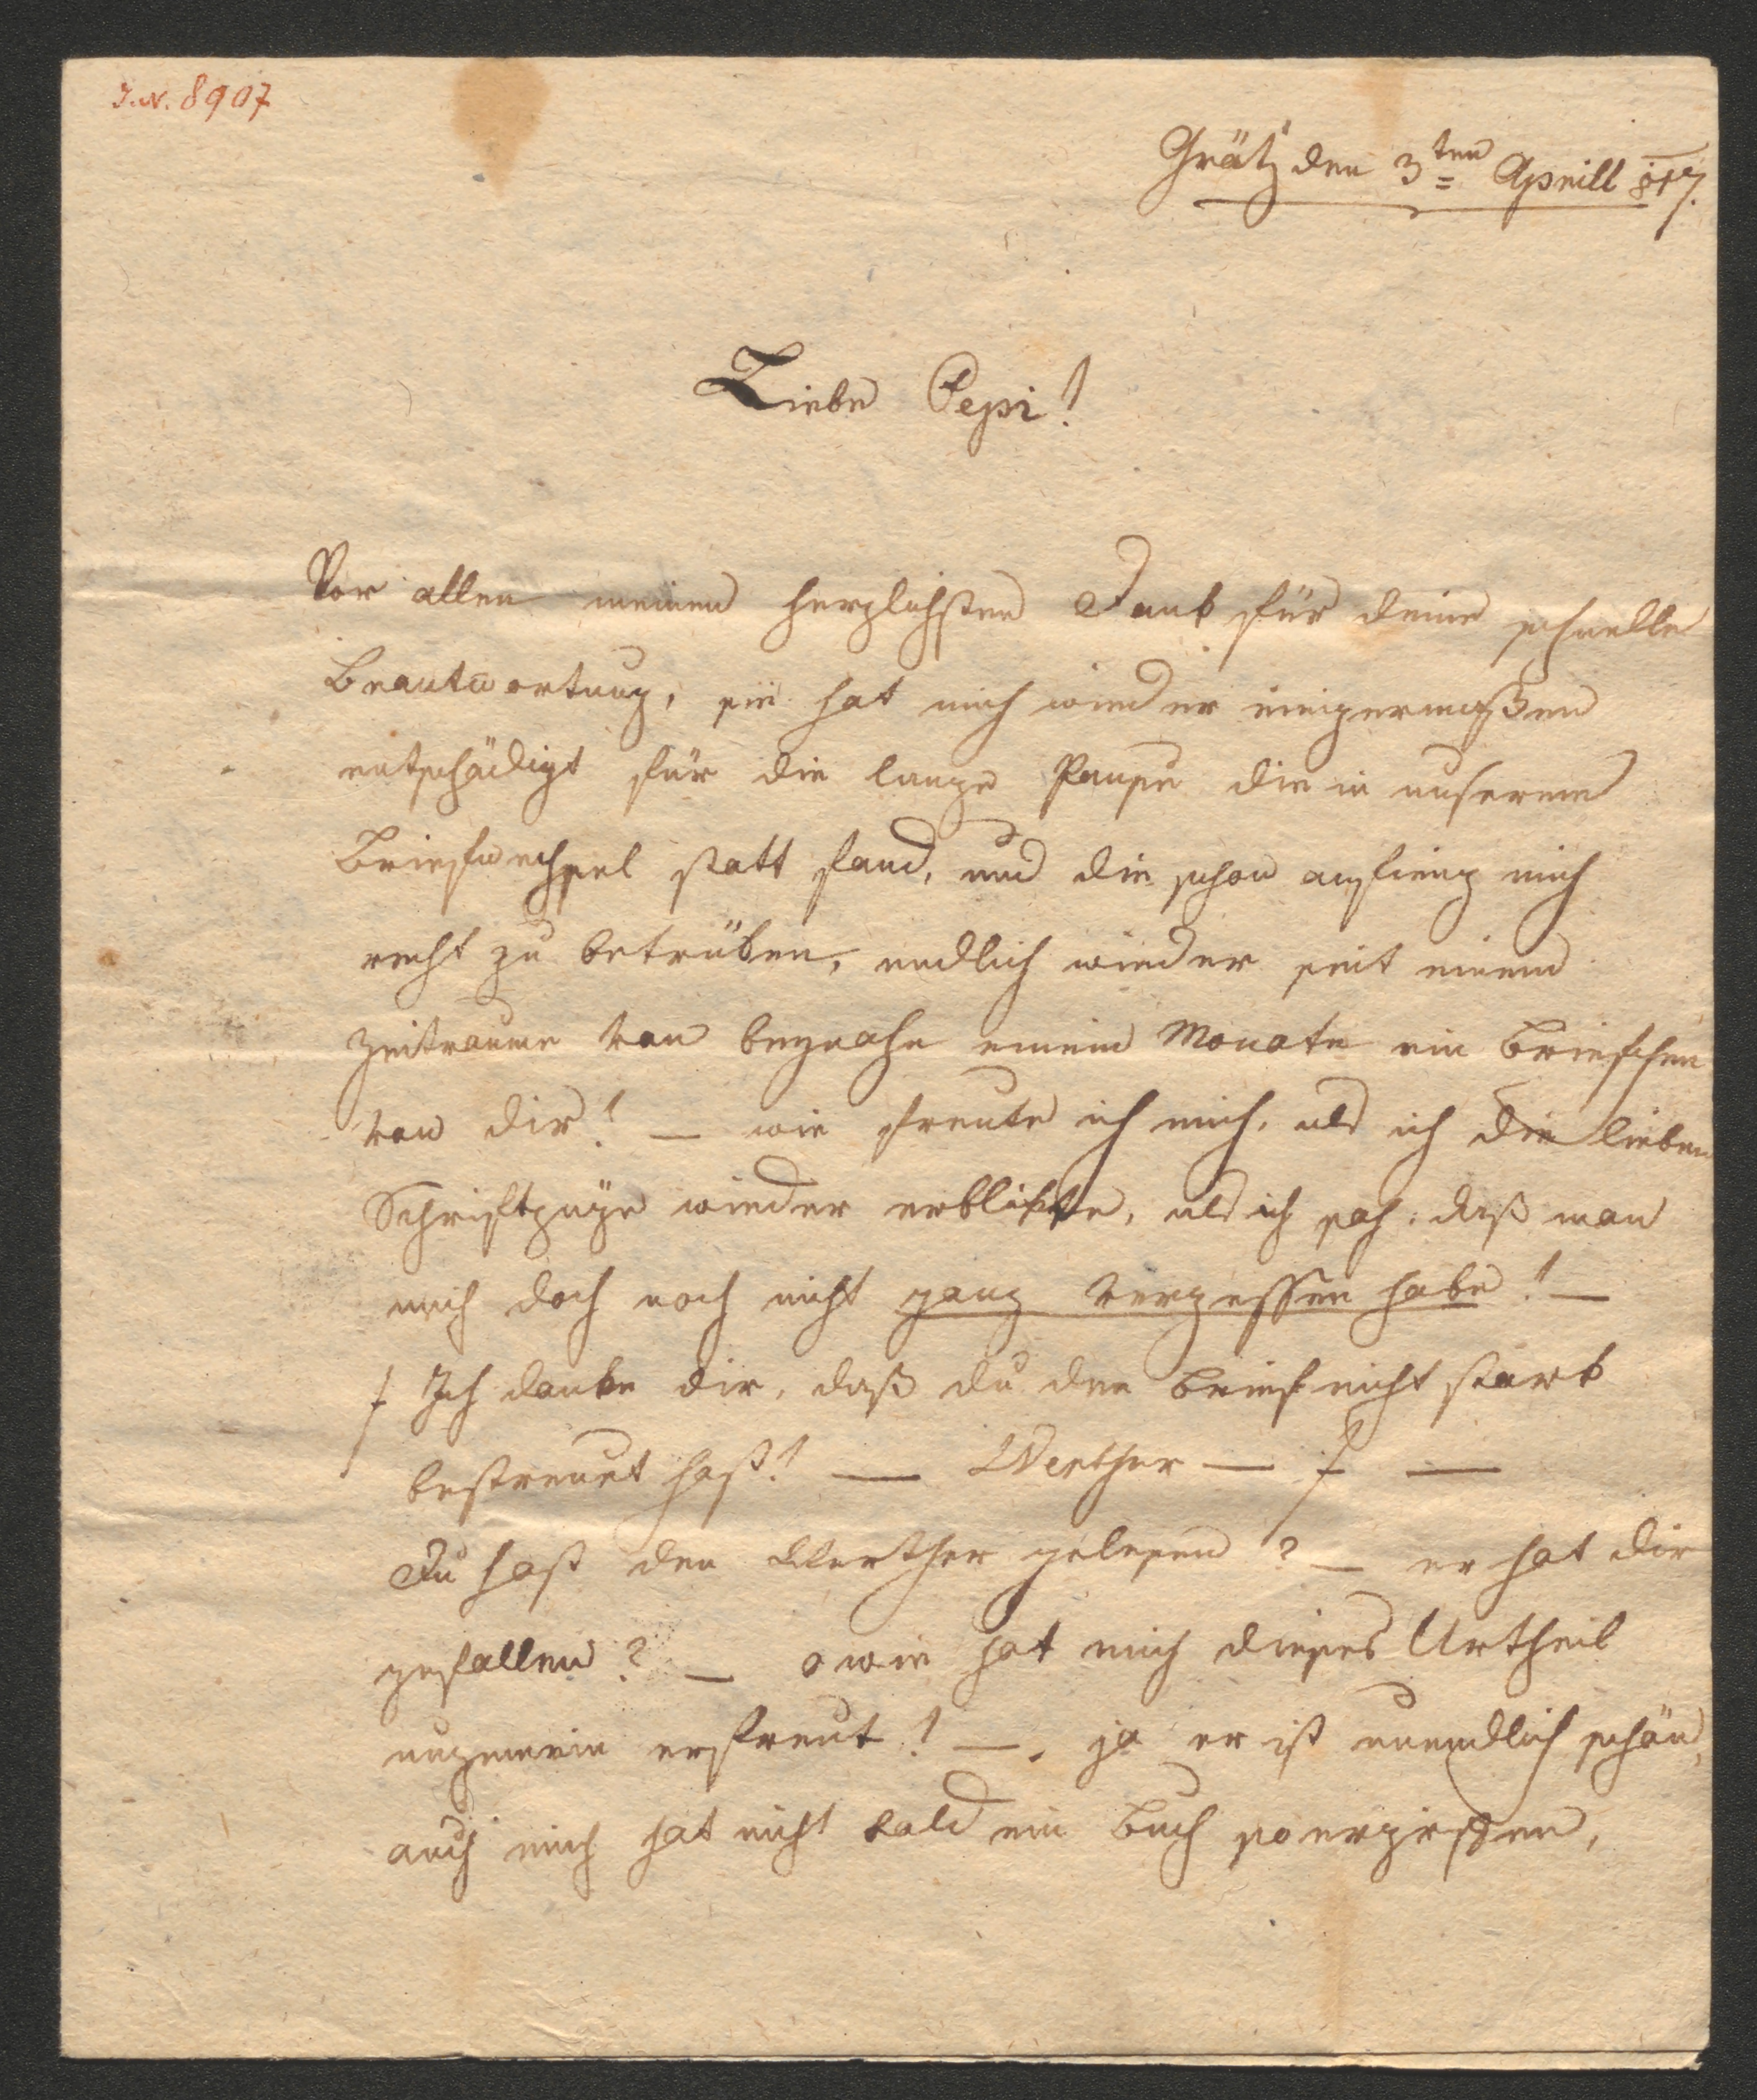 I.N. 8907
Grätz den 3ten Aprill 817.
Liebe Pepi!
Vor allen meinen herzlichsten Dank für deine schnelle
Beantwortung, sie hat mich wieder einigermaßen
entschädigt für die lange Pause die in unserem
Briefwechsel statt fand, und die schon anfieng mich
recht zu betrüben, endlich wieder seit einem
Zeitraume von beynahe einem Monate ein Briefchen
von dir! — wie freute ich mich, als ich die lieben
Schriftzüge wieder erblikte, als ich sah, daß man
mich doch noch nicht ganz vergessen habe! —
/ Ich danke dir, daß du den Brief nicht stark
bestreuet hast! — Werther — / —
Du hast den Werther gelesen? — er hat dir
gefallen? — o wie hat mich dieses Urtheil
ungemein erfreut! — ja er ist unendlich schön,
auch mich hat nicht bald ein Buch so ergriffen,